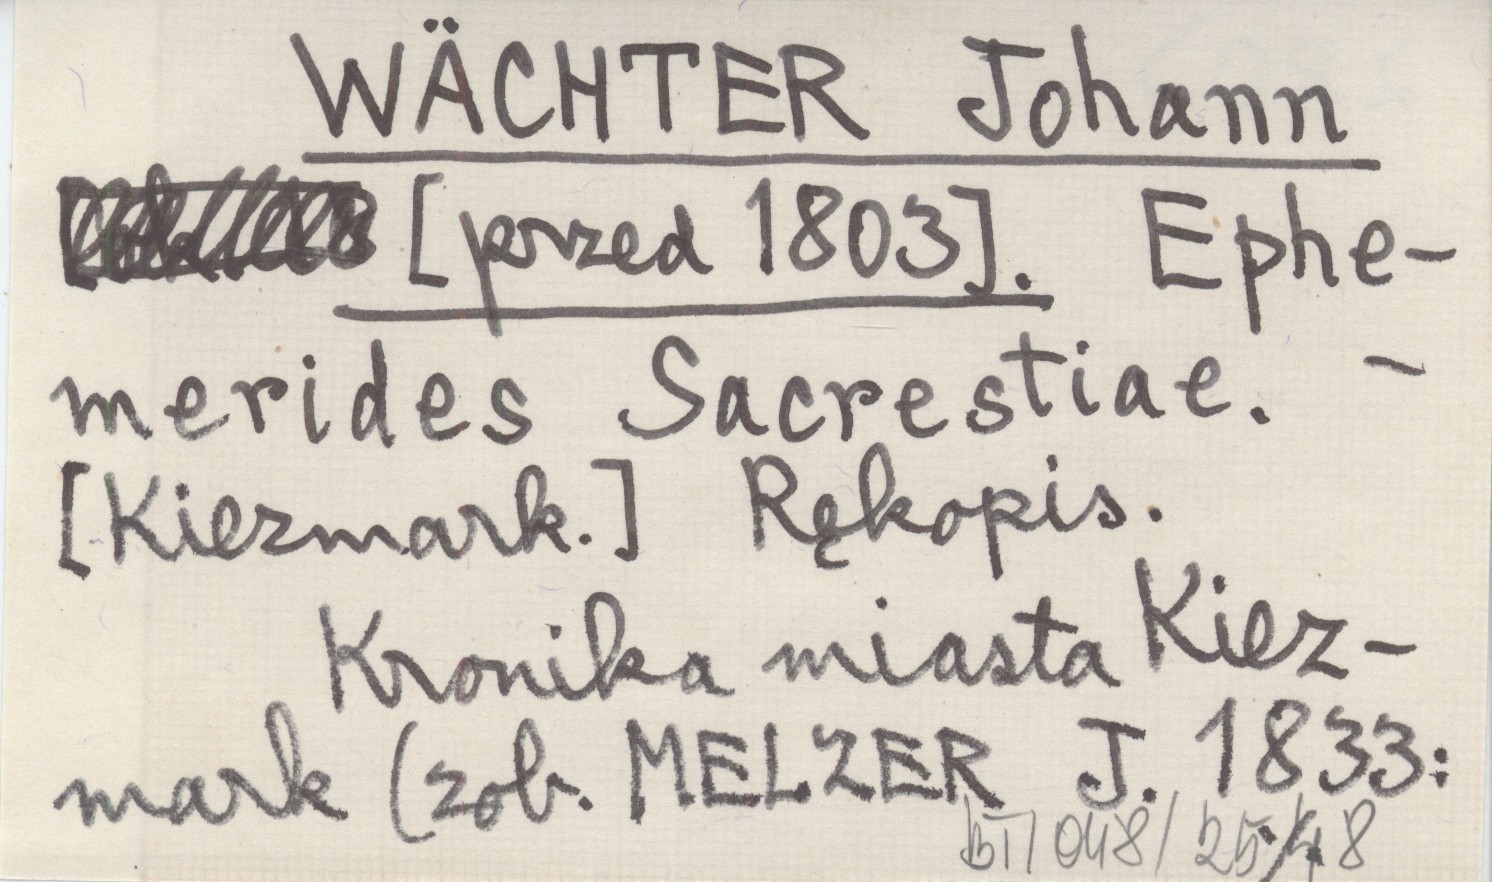 WÄCHTER Johann
[przed 1803]. Ephe-
merides Sacrestiae. -
[Kiezmark.] Rękopis.
Kronika miasta Kiez-
mark (zob. MELZER J. 1833:
048/25/48